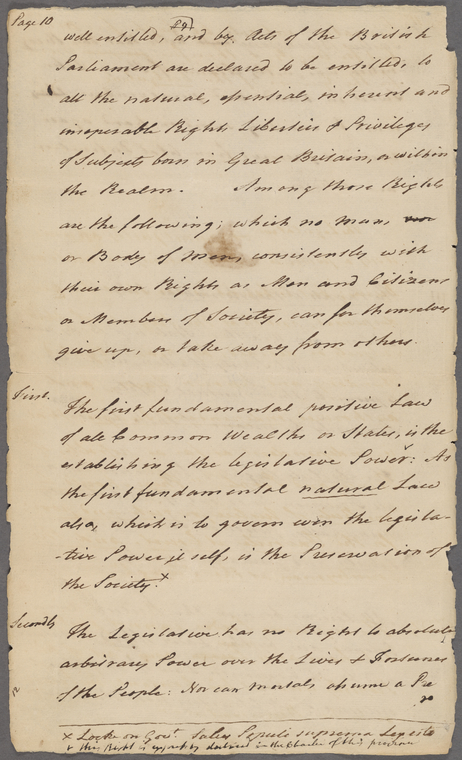 Page 10
well entitled, and by Acts of the British
Parliament are declared to be entitled, to
all the natural, essential, inherent and
inseperable Rights Liberties & Privileges
of Subjects born in Great Britain, or within
the Realm. Among those Rights
are the following; which no man,
or Body of men, consistently with
their own Rights as Men and Citizens
or Members of Society, can for themselves
give up, or take away from others.
First.
The first fundamental positive Law
of all Common Wealths or States, is the
establishing the legislative Power: As
the first fundamental natural Law
also, which is to govern even the legisla-
-tive Power it self, is the Preservation of
the Society.x
Secondly
The Legislative has no Right to absolute
arbitrary Power over the Lives & Fortunes
of the People: Nor can mortals assume a Pre
x Locke on Govt. Salus Populi suprema Lex esto
+ this Right is expressly declared in the Charter of this province